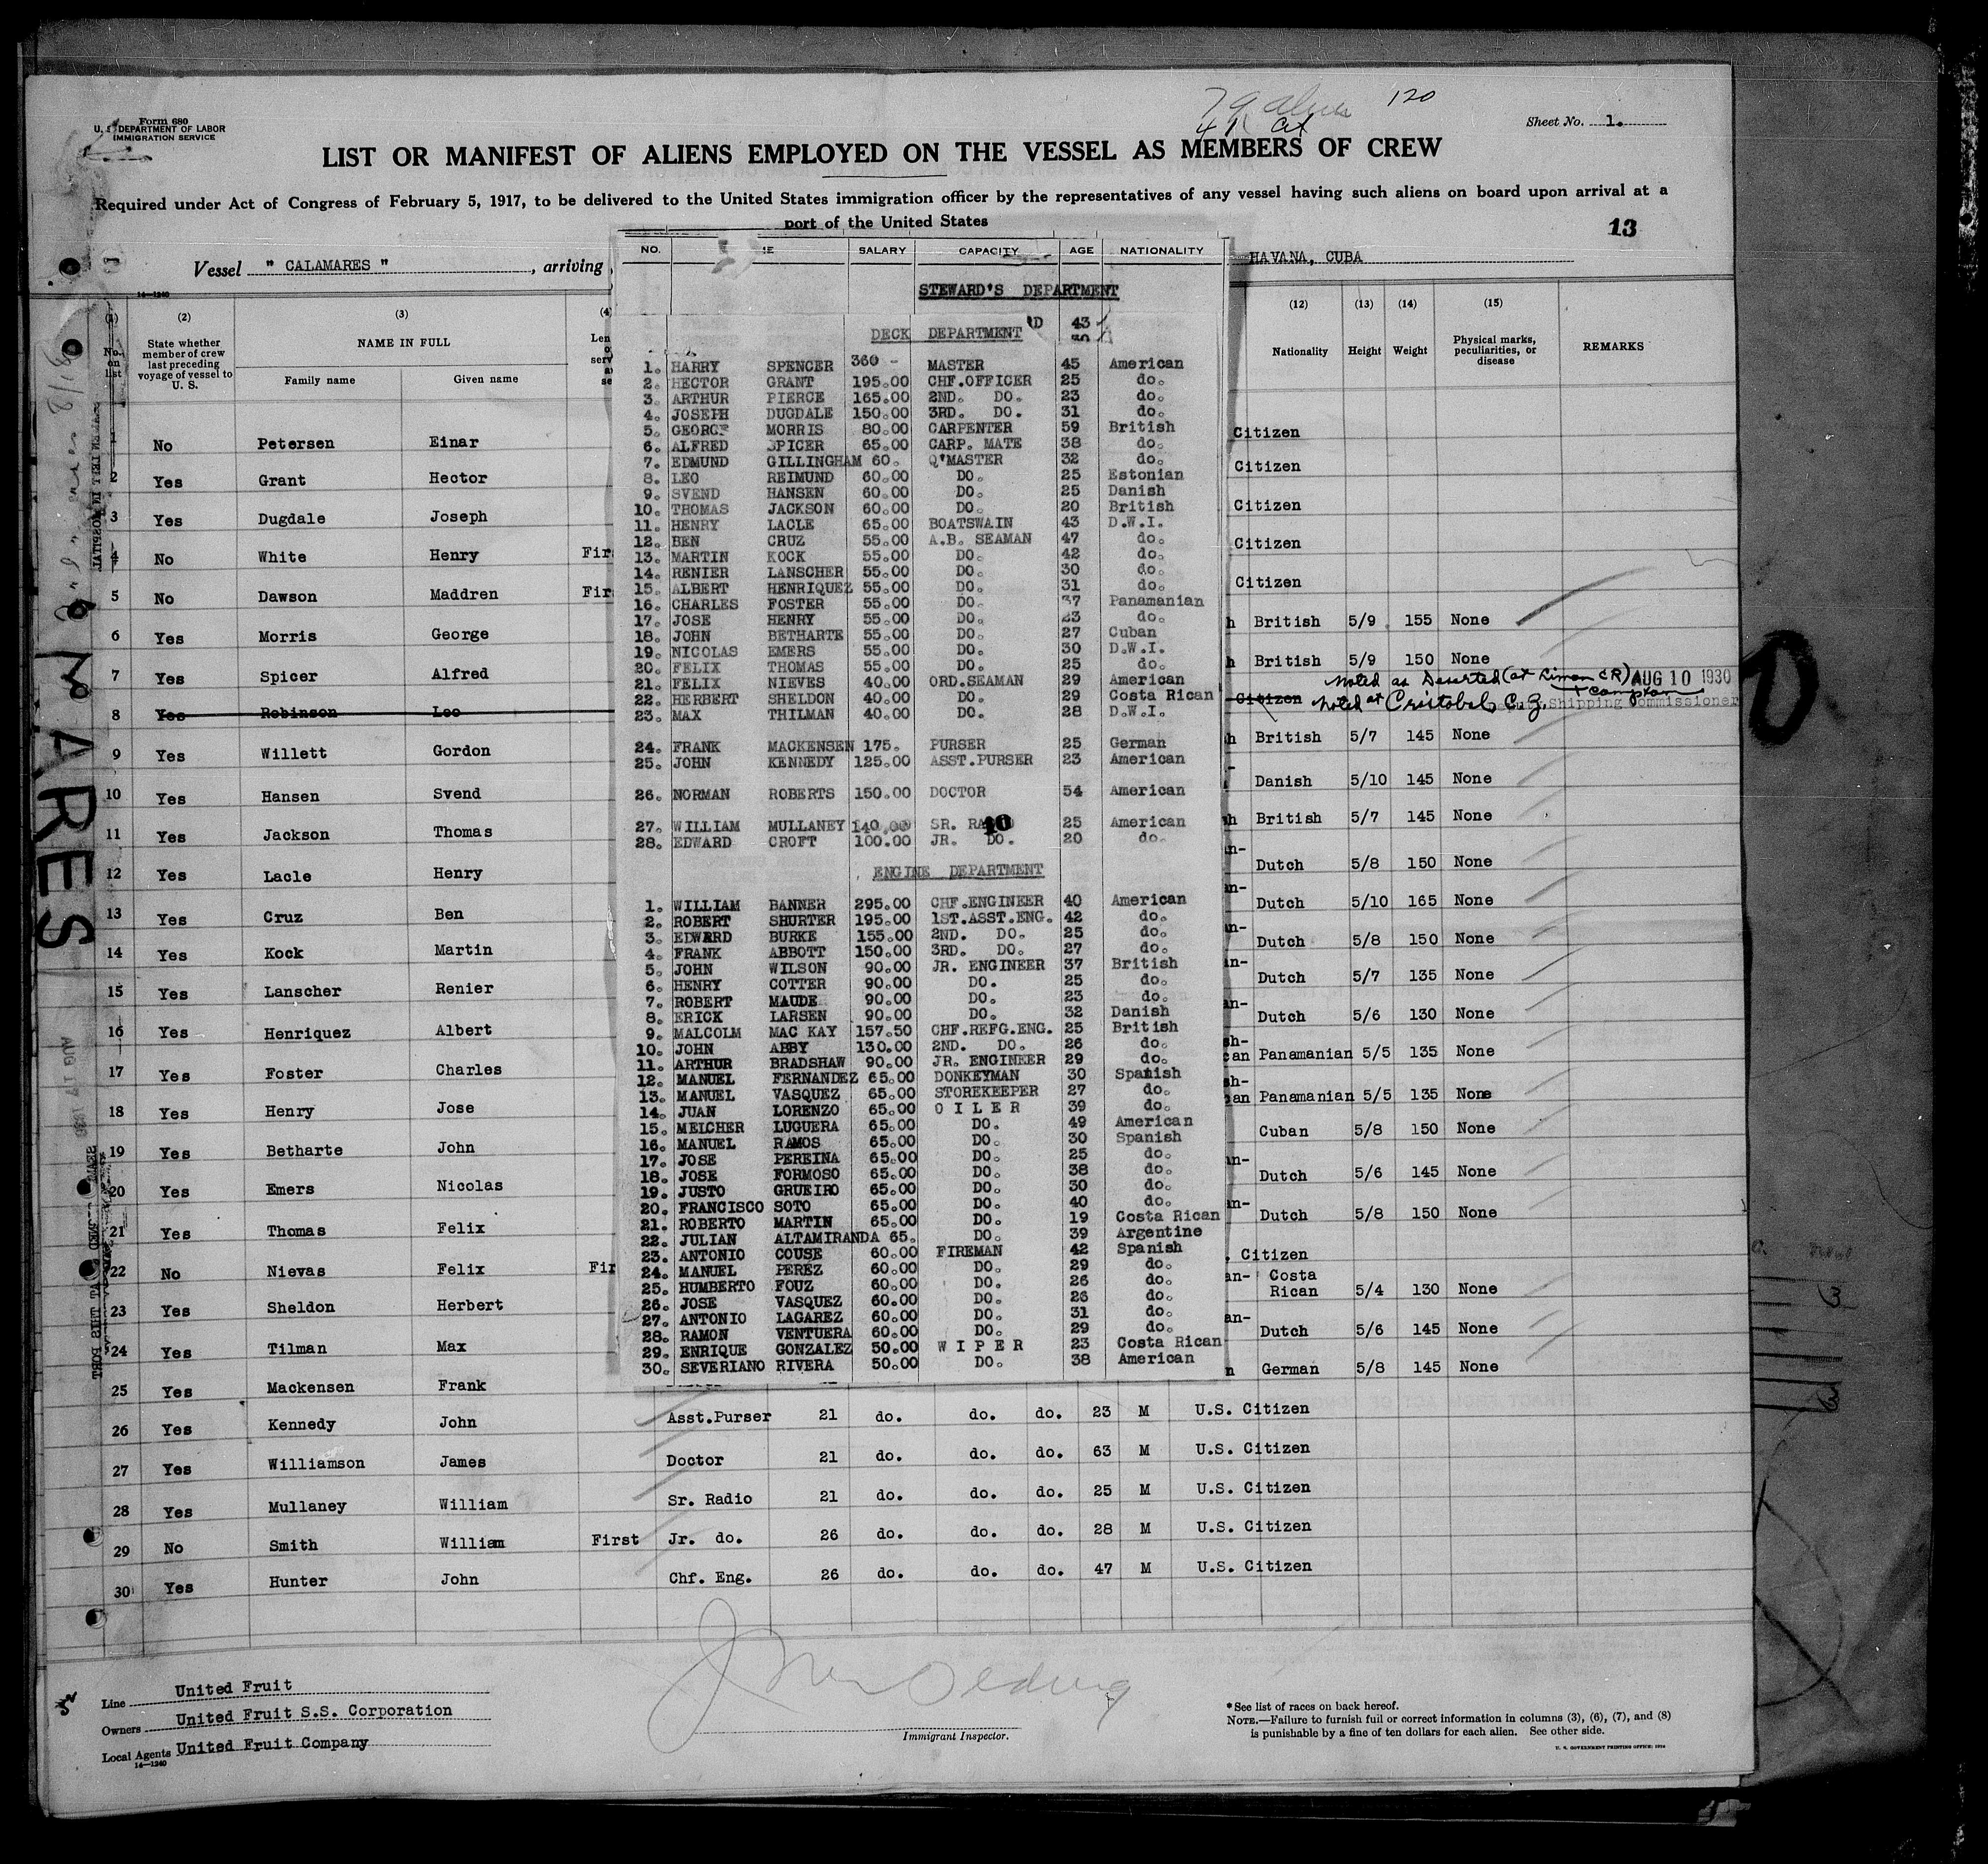 Form 680
U. S. DEPARTMENT OF LABOR
IMMIGRATION SERVICE
79 aliens 120
41 cit
Sheet No. 1.
LIST OR MANIFEST OF ALIENS EMPLOYED ON THE VESSEL AS MEMBERS OF CREW
Required under Act of Congress of February 5, 1917, to be delivered to the United States immigration officer by the representatives of any vessel having such aliens on board upon arrival at a
port of the United States
13
Vessel " CALAMARES ", arriving
HAVANA, CUBA
14—1240
(1) (2) (3) (4)
No. on list
State whether member of crew last preceding voyage of vessel to U. S.
NAME IN FULL
Family name Given name
(12) (13) (14) (15)
Nationality Height Weight Physical marks, peculiarities, or disease REMARKS
1 No Petersen Einar Citizen
2 Yes Grant Hector Citizen
3 Yes Dugdale Joseph Citizen
4 No White Henry Citizen
5 No Dawson Maddren Citizen
6 Yes Morris George British 5/9 155 None
7 Yes Spicer Alfred British 5/9 150 None
Noted as Deserted (at Limon CR) AUG 10 1930
8 Yes Robinson Leo Citizen Noted at Cristobal, C.Z. Shipping Commissioner
9 Yes Willett Gordon British 5/7 145 None
10 Yes Hansen Svend Danish 5/10 145 None
11 Yes Jackson Thomas British 5/7 145 None
12 Yes Lacle Henry Dutch 5/8 150 None
13 Yes Cruz Ben Dutch 5/10 165 None
14 Yes Kock Martin Dutch 5/8 150 None
15 Yes Lanscher Renier Dutch 5/7 135 None
16 Yes Henriquez Albert Dutch 5/6 130 None
17 Yes Foster Charles Panamanian 5/5 135 None
18 Yes Henry Jose Panamanian 5/5 135 None
19 Yes Betharte John Cuban 5/8 150 None
20 Yes Emers Nicolas Dutch 5/6 145 None
21 Yes Thomas Felix Dutch 5/8 150 None
22 No Nievas Felix Citizen
23 Yes Sheldon Herbert Costa Rican 5/4 130 None
24 Yes Tilman Max Dutch 5/6 145 None
25 Yes Mackensen Frank German 5/8 145 None
26 Yes Kennedy John Asst.Purser 21 do. do. do. 23 M U.S. Citizen
27 Yes Williamson James Doctor 21 do. do. do. 63 M U.S. Citizen
28 Yes Mullaney William Sr. Radio 21 do. do. do. 25 M U.S. Citizen
29 No Smith William First Jr. do. 26 do. do. do. 28 M U.S. Citizen
30 Yes Hunter John Chf. Eng. 26 do. do. do. 47 M U.S. Citizen
NO. SALARY CAPACITY AGE NATIONALITY
STEWARD'S DEPARTMENT
43
DECK DEPARTMENT
1. HARRY SPENCER 360 - MASTER 45 American
2. HECTOR GRANT 195.00 CHF.OFFICER 25 do.
3. ARTHUR PIERCE 165.00 2ND. DO. 23 do.
4. JOSEPH DUGDALE 150.00 3RD. DO. 31 do.
5. GEORGE MORRIS 80.00 CARPENTER 59 British
6. ALFRED SPICER 65.00 CARP. MATE 38 do.
7. EDMUND GILLINGHAM 60. Q'MASTER 32 do.
8. LEO REIMUND 60.00 DO. 25 Estonian
9. SVEND HANSEN 60.00 DO. 25 Danish
10. THOMAS JACKSON 60.00 DO. 20 British
11. HENRY LACLE 65.00 BOATSWAIN 43 D.W.I.
12. BEN CRUZ 55.00 A.B. SEAMAN 47 do.
13. MARTIN KOCK 55.00 DO. 42 do.
14. RENIER LANSCHER 55.00 DO. 30 do.
15. ALBERT HENRIQUEZ 55.00 DO. 31 do.
16. CHARLES FOSTER 55.00 DO. 37 Panamanian
17. JOSE HENRY 55.00 DO. 23 do.
18. JOHN BETHARTE 55.00 DO. 27 Cuban
19. NICOLAS EMERS 55.00 DO. 30 D.W.I.
20. FELIX THOMAS 55.00 DO. 25 do.
21. FELIX NIEVES 40.00 ORD.SEAMAN 29 American
22. HERBERT SHELDON 40.00 DO. 29 Costa Rican
23. MAX THILMAN 40.00 DO. 28 D.W.I.
24. FRANK MACKENSEN 175. PURSER 25 German
25. JOHN KENNEDY 125.00 ASST.PURSER 23 American
26. NORMAN ROBERTS 150.00 DOCTOR 54 American
27. WILLIAM MULLANEY 140.00 SR. RA 40 25 American
28. EDWARD CROFT 100.00 JR. DO. 20 do.
ENGINE DEPARTMENT
1. WILLIAM BANNER 295.00 CHF.ENGINEER 40 American
2. ROBERT SHURTER 195.00 1ST.ASST.ENG. 42 do.
3. EDWARD BURKE 155.00 2ND. DO. 25 do.
4. FRANK ABBOTT 150.00 3RD. DO. 27 do.
5. JOHN WILSON 90.00 JR. ENGINEER 37 British
6. HENRY COTTER 90.00 DO. 25 do.
7. ROBERT MAUDE 90.00 DO. 23 do.
8. ERICK LARSEN 90.00 DO. 32 Danish
9. MALCOLM MAC KAY 157.50 CHF.REFG.ENG. 25 British
10. JOHN ABBY 130.00 2ND. DO. 26 do.
11. ARTHUR BRADSHAW 90.00 JR. ENGINEER 29 do.
12. MANUEL FERNANDEZ 65.00 DONKEYMAN 30 Spanish
13. MANUEL VASQUEZ 65.00 STOREKEEPER 27 do.
14. JUAN LORENZO 65.00 O I L E R 39 do.
15. MELCHER LUGUERA 65.00 DO. 49 American
16. MANUEL RAMOS 65.00 DO. 30 Spanish
17. JOSE PEREINA 65.00 DO. 25 do.
18. JOSE FORMOSO 65.00 DO. 38 do.
19. JUSTO GRUEIRO 65.00 DO. 30 do.
20. FRANCISCO SOTO 65.00 DO. 40 do.
21. ROBERTO MARTIN 65.00 DO. 19 Costa Rican
22. JULIAN ALTAMIRANDA 65. DO. 39 Argentine
23. ANTONIO COUSE 60.00 FIREMAN 42 Spanish
24. MANUEL PEREZ 60.00 DO. 29 do.
25. HUMBERTO FOUZ 60.00 DO. 26 do.
26. JOSE VASQUEZ 60.00 DO. 26 do.
27. ANTONIO LAGAREZ 60.00 DO. 31 do.
28. RAMON VENTUERA 60.00 DO. 29 do.
29. ENRIQUE GONZALEZ 50.00 W I P E R 23 Costa Rican
30. SEVERIANO RIVERA 50.00 DO. 38 American
Line United Fruit
Owners United Fruit S.S. Corporation
Local Agents United Fruit Company
14—1240
Immigrant Inspector.
*See list of races on back hereof.
NOTE.—Failure to furnish full or correct information in columns (3), (6), (7), and (8)
is punishable by a fine of ten dollars for each alien. See other side.
U. S. GOVERNMENT PRINTING OFFICE